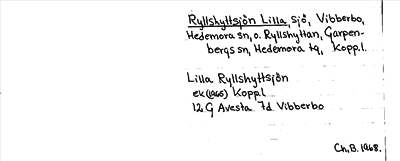 Ryllshyttsjön Lilla, sjö, Vibberbo,
Hedemora sn, o. Ryllshyttan, Garpen-
bergs sn, Hedemora tg, Kopp.l.
Lilla Ryllshyttsjön
ek (1965) Kopp.l
12 G Avesta 7d Vibberbo
Ch. B. 1968.